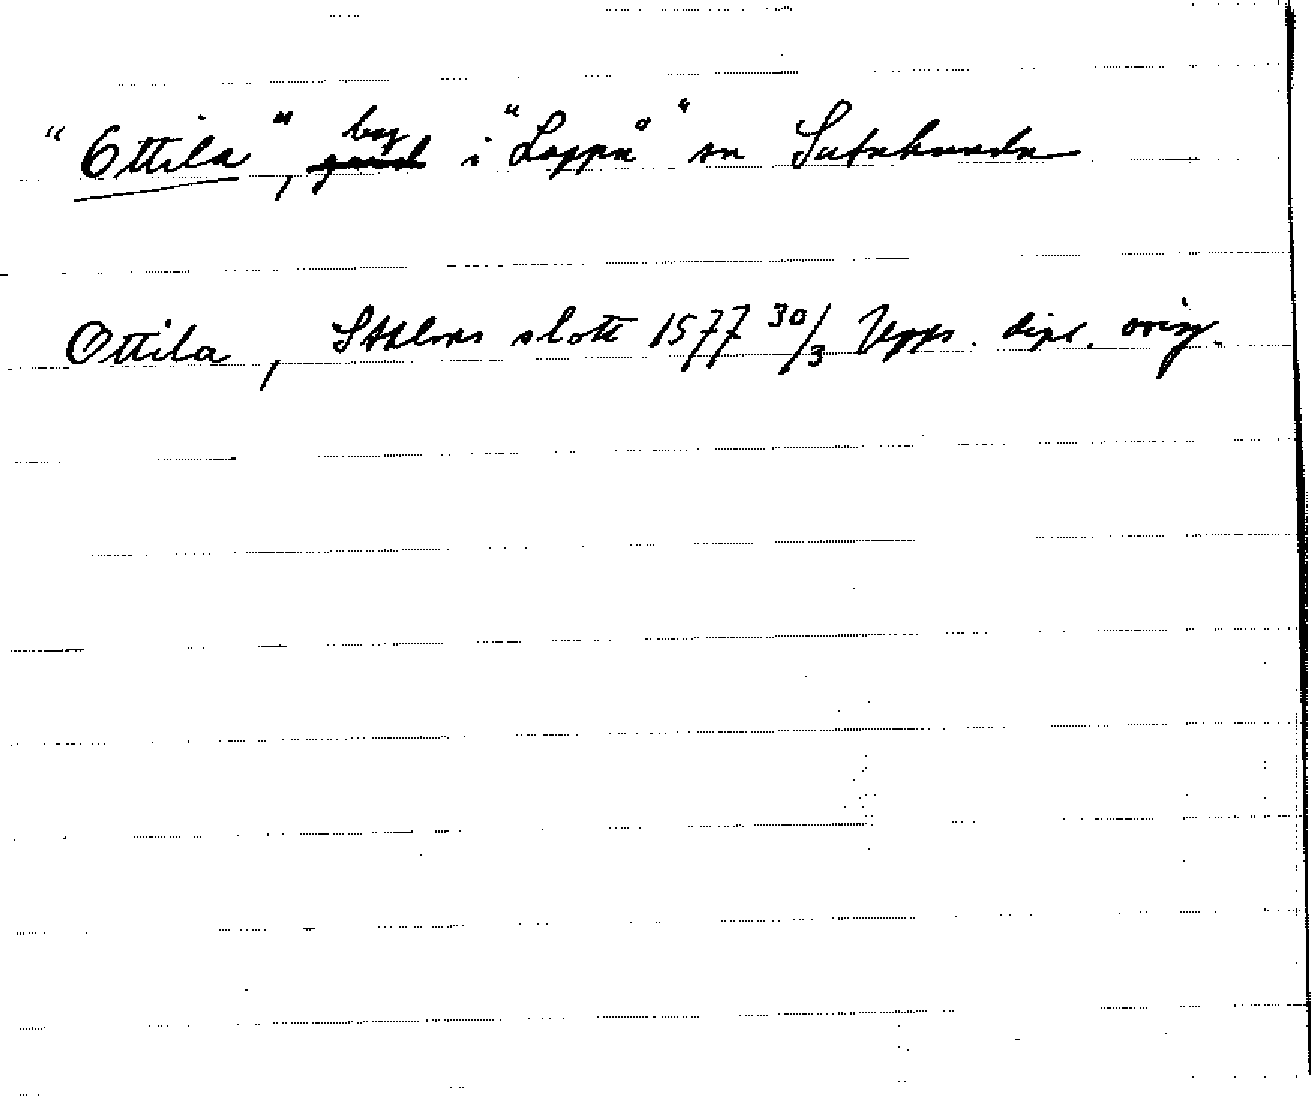 "Ottila", by i "Lappå" sn Satakunda
Ottila, Sthlms slott 1577 30/3 Upps. dipl. orig.